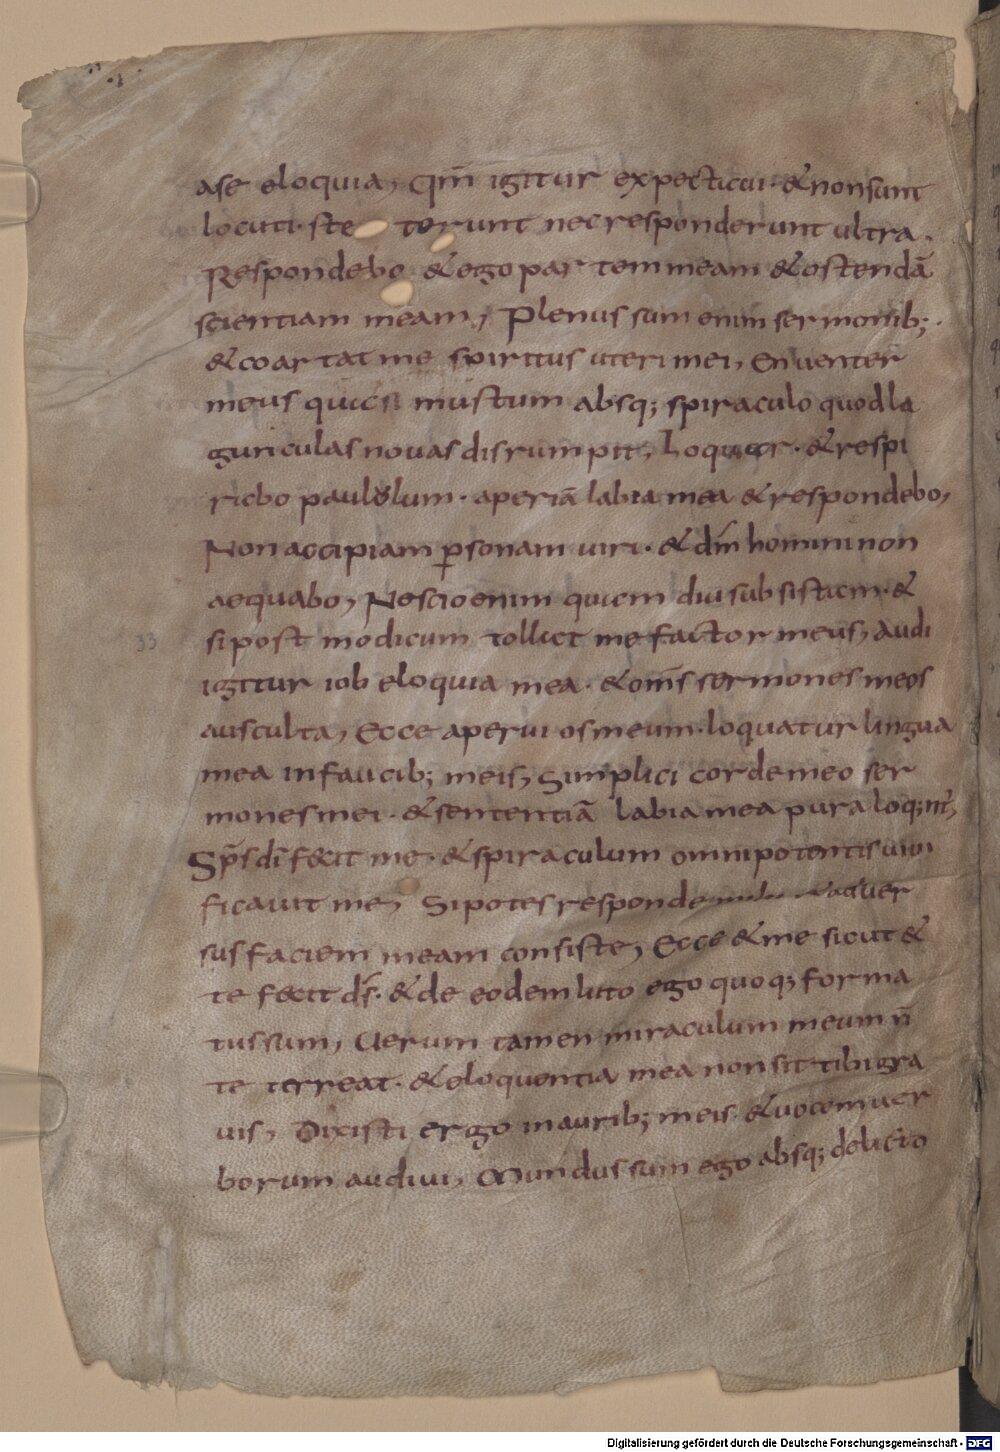 ase eloquia, Qm̄ igitur expectaui· & non sunt
locuti· ste terunt nec responderunt ultra.
Respondebo & ego partem meam & ostendā
scientiam meam, Plenus sum enim sermonib;·
& coartat me spiritus uteri mei, En uenter
meus quasi mustum absq; spiraculo quod la
gunculas nouas disrumpit, Loquar· & respi
rabo paululum· aperiā labia mea & respondebo,
Non accipiam p̱sonam uiri· & dm̄ homini non
aequabo, Nescio enim quam diu subsistam· &
si post modicum tollat me factor meus, Audi
33
igitur iob eloquia mea· & om̄s sermones meos
ausculta, Ecce aperui os meum· loquatur lingua
mea in faucib; meis, Simplici corde meo ser
mones mei· & sententiā labia mea pura loq;nt̄,
Sp̄s dī fecit me· & spiraculum omnipotentis uiui
ficauit me, Si potes responde mihi aduer
sus faciem meam consiste, Ecce & me sicut &
te fecit ds̄· & de eodem luto ego quoq; forma
tus sum, Uerum tamen miraculum meum n̄
te terreat· & eloquentia mea non sit tibi gra
uis, Dixisti ergo in aurib; meis & uocem uer
borum audiui, Mundus sum ego absq; delicto
Digitalisierung gefördert durch die Deutsche Forschungsgemeinschaft - DFG